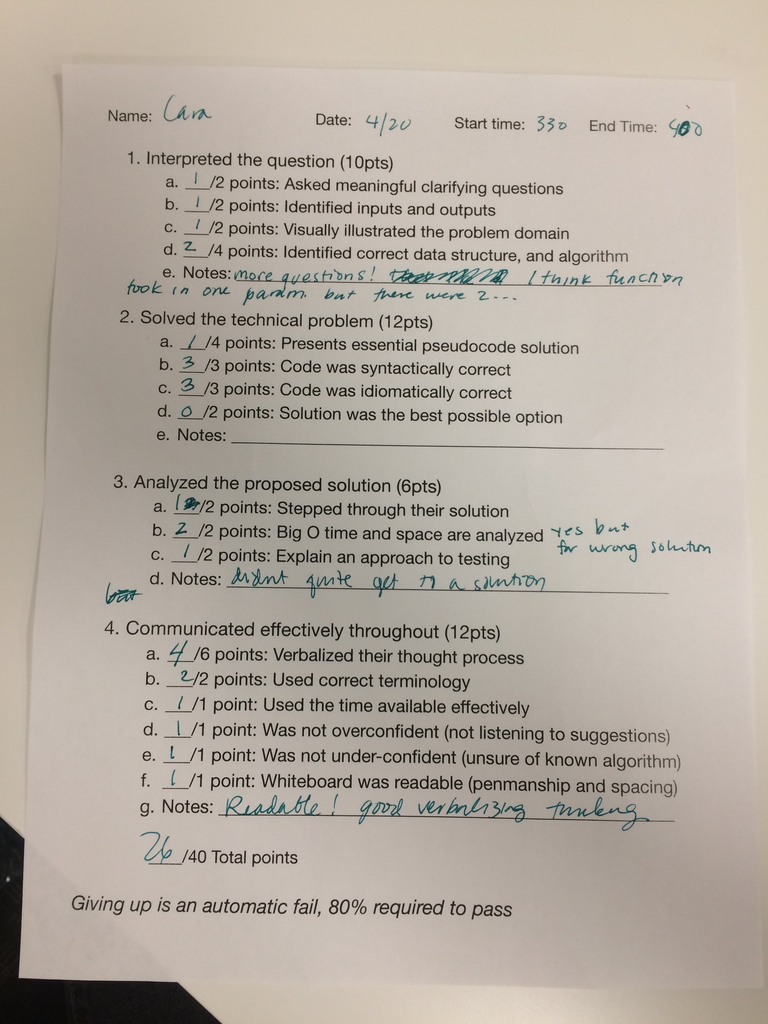 Name: Cara Date: 4/20 Start time: 330 End Time: 400
1. Interpreted the question (10pts)
a. 1/2 points: Asked meaningful clarifying questions
b. 1/2 points: Identified inputs and outputs
c. 1/2 points: Visually illustrated the problem domain
d. 2/4 points: Identified correct data structure, and algorithm
e. Notes: more questions! I think function
took in one param. but there were 2...
2. Solved the technical problem (12pts)
a. 1/4 points: Presents essential pseudocode solution
b. 3/3 points: Code was syntactically correct
c. 3/3 points: Code was idiomatically correct
d. 0/2 points: Solution was the best possible option
e. Notes:
3. Analyzed the proposed solution (6pts)
a. 1/2 points: Stepped through their solution
b. 2/2 points: Big O time and space are analyzed yes but
for wrong solution
c. 1/2 points: Explain an approach to testing
d. Notes: didnt quite get to a solution
4. Communicated effectively throughout (12pts)
a. 4/6 points: Verbalized their thought process
b. 2/2 points: Used correct terminology
c. 1/1 point: Used the time available effectively
d. 1/1 point: Was not overconfident (not listening to suggestions)
e. 1/1 point: Was not under-confident (unsure of known algorithm)
f. 1/1 point: Whiteboard was readable (penmanship and spacing)
g. Notes: Readable! good verbalizing thinking
26/40 Total points
Giving up is an automatic fail, 80% required to pass